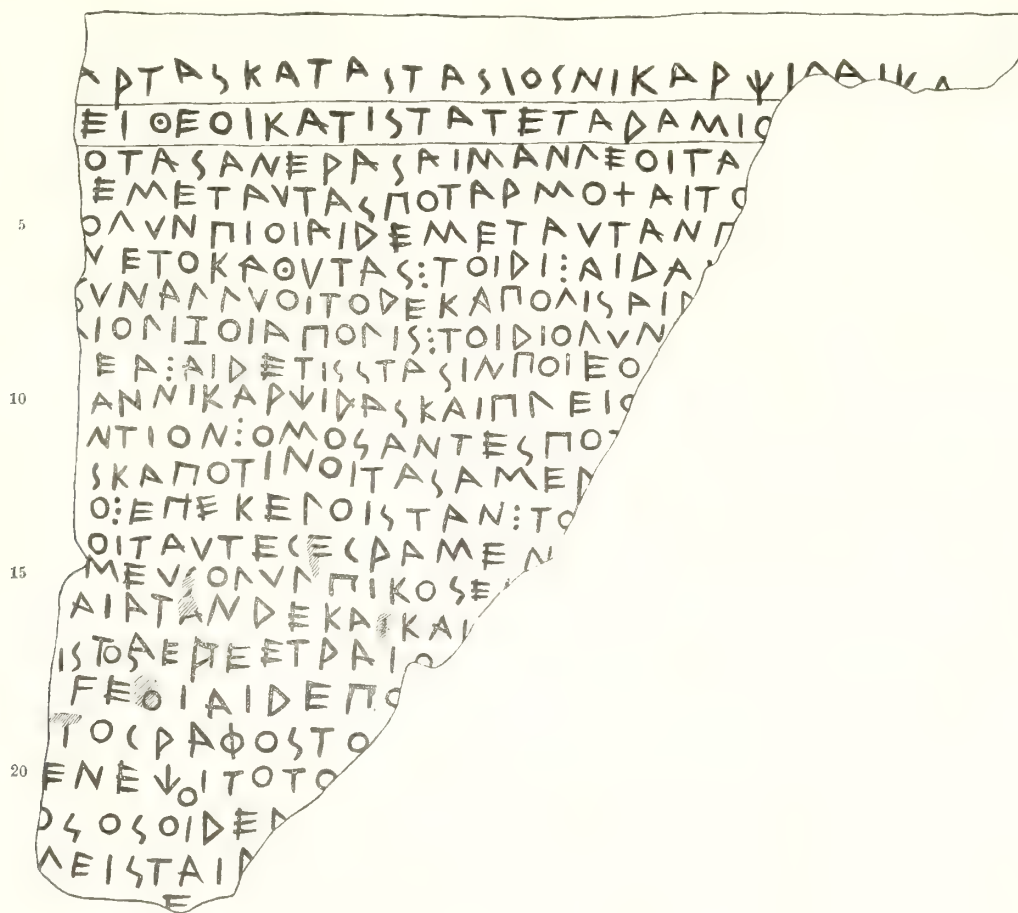 ΑΡΤΑΣΚΑΤΑΣΤΑΣΙΟΣΝΙΚΑΡΨΙΔΑΙΚΑ
ΕΙΘΕΟΙΚΑΤΙΣΤΑΤΕΤΑΔΑΜΙΟ
ΟΤΑΣΑΝΕΡΑΣΑΙΜΑΝΛΕΟΙΤΑ
ΕΜΕΤΑΥΤΑΣΠΟΤΑΡΜΟ+ΑΙΤΟ
5 ΟΛΥΝΠΙΟΙΑΙΔΕΜΕΤΑΥΤΑΝΠ
ΥΕΤΟΚΑΘΥΤΑΣ⋮ΤΟΙΔΙ⋮ΑΙΔΑ
ΣΥΝΑΛΛΥΟΙΤΟΔΕΚΑΠΟΛΙΣΑΙΡ
ΛΙΟΛΙΖΟΙΑΠΟΛΙΣ⋮ΤΟΙΔΙΟΛΥΝ
ΕΑ⋮ΑΙΔΕΤΙΣΣΤΑΣΙΝΠΟΙΕΟ
10 ΑΝΝΙΚΑΡΨΙΔΑΣΚΑΙΠΛΕΙΟ
ΝΤΙΟΝ⋮ΟΜΟΣΑΝΤΕΣΠΟΤ
ΣΚΑΠΟΤΙΝΟΙΤΑΣΑΜΕΡ
Ο⋮ΕΠΕΚΕΛΟΙΣΤΑΝ⋮ΤΟ
ΟΙΤΑΥΤΕΓΕΓΡΑΜΕΝ
15 ΜΕΥΣΟΛΥΛΠΙΚΟΣΕ
ΑΙΑΤΑΝΔΕΚΑΙΚΑΙ
ΙΣΤΟΣΑΕΡΕΕΤΡΑΙΟ
ϜΕΟΙΑΙΔΕΠΟ
ΤΟΓΡΑΦΟΣΤΟ
20 ΕΝΕΨΟΙΤΟΤΟ
ΟΣΟΣΟΙΔΕΛ
ΛΕΙΣΤΑΙΡ
Ε